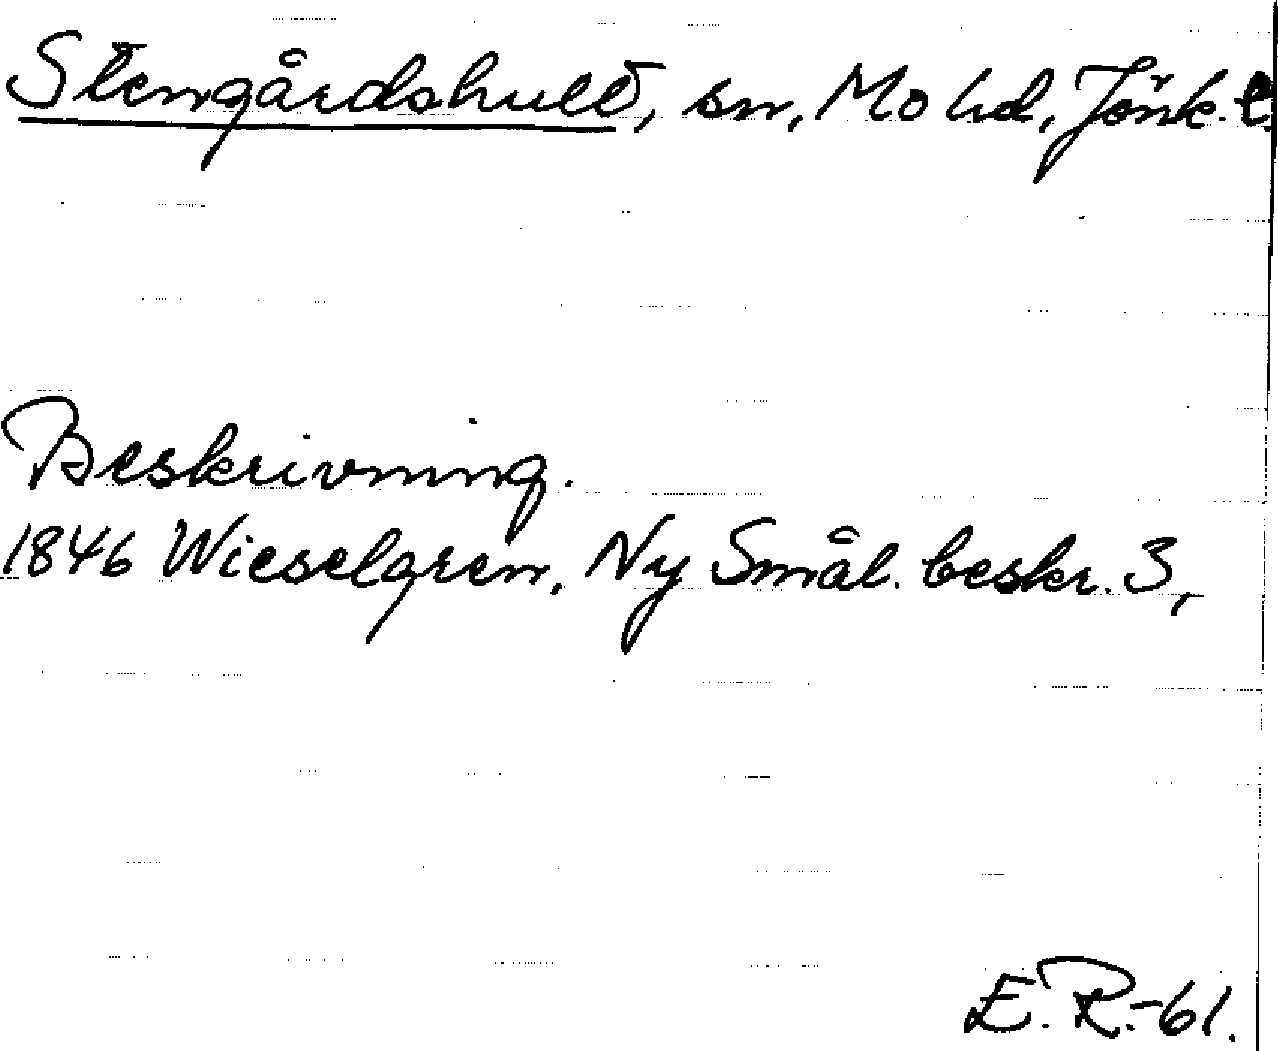 Stengårdshult, sn, Mo hd, Jönk. l.
Beskrivning.
1846 Wieselgren, Ny Smål. beskr. 3,
E. R.-61.